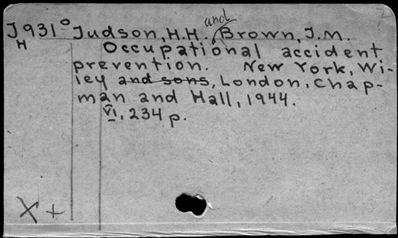 J931° Judson, H.H. and Brown, J.M.
H Occupational accident
prevention. New York, Wi-
ley and sons, London, Chap-
man and Hall, 1944.
VI, 234 p.
X +